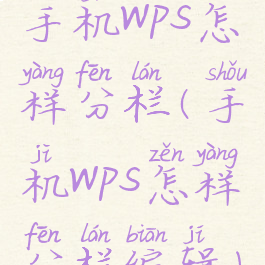 手机WPS怎
yàng fēn lán shǒu
样分栏(手
jī zěn yàng
机WPS怎样
fēn lán biān jí
分栏编辑)